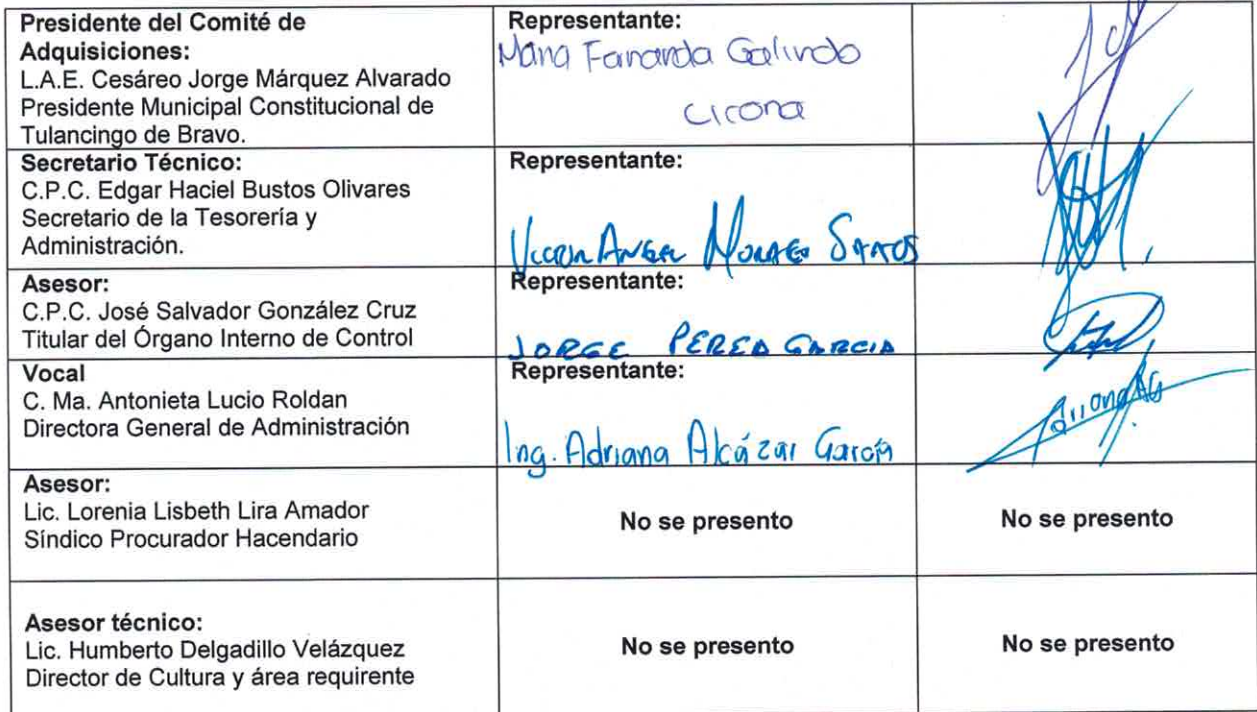 Presidente del Comité de
Adquisiciones:
L.A.E. Cesáreo Jorge Márquez Alvarado
Presidente Municipal Constitucional de
Tulancingo de Bravo.
Representante:
Maria Fernanda Galindo
Secretario Técnico:
C.P.C. Edgar Haciel Bustos Olivares
Secretario de la Tesorería y
Administración.
Representante:
Victor Angel
Asesor:
C.P.C. José Salvador González Cruz
Titular del Órgano Interno de Control
Representante:
JORGE PEREA GARCIA
Vocal
C. Ma. Antonieta Lucio Roldan
Directora General de Administración
Representante:
Ing. Adriana Alcázar García
Asesor:
Lic. Lorenia Lisbeth Lira Amador
Síndico Procurador Hacendario
No se presento
No se presento
Asesor técnico:
Lic. Humberto Delgadillo Velázquez
Director de Cultura y área requirente
No se presento
No se presento